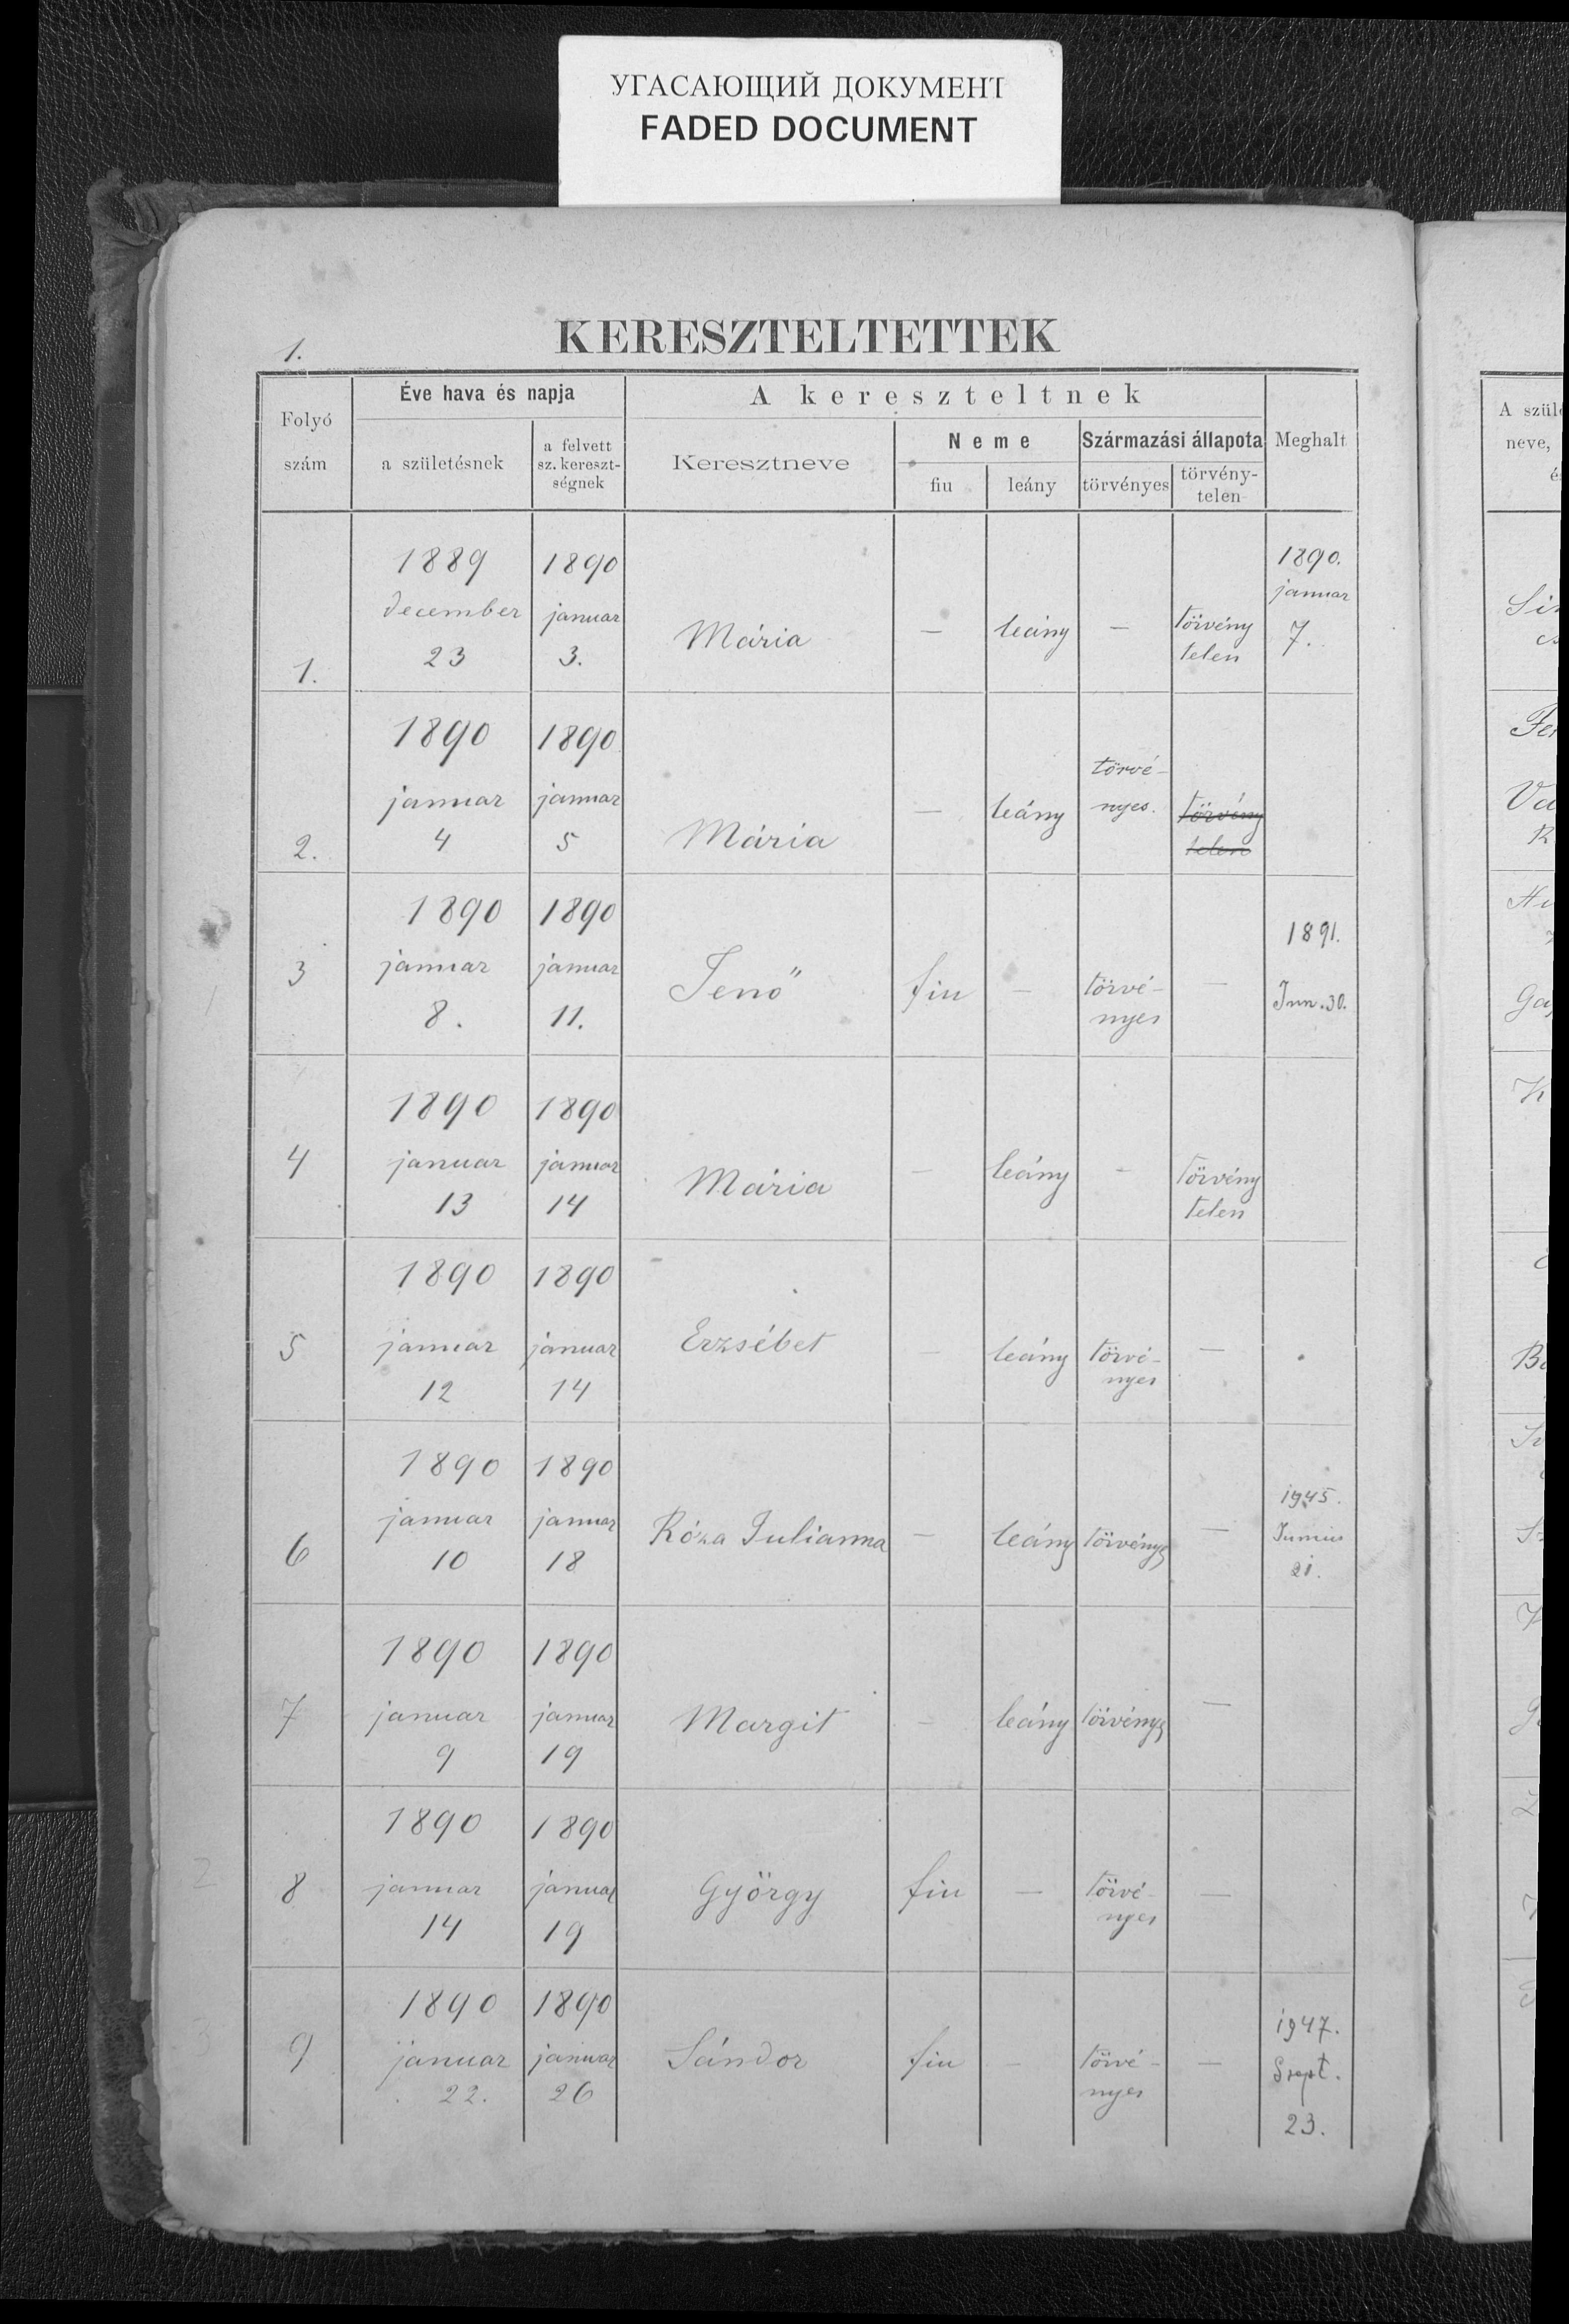 УГАСАЮЩИЙ ДОКУМЕНТ
FADED DOCUMENT
1.
KERESZTELTETTEK
Folyó szám
Éve hava és napja
a születésnek
a felvett sz. kereszt-ségnek
A kereszteltnek
Keresztneve
Neme
fiu
leány
Származási állapota
törvényes
törvény-telen
Meghalt
1.
1889 december 23
1890 januar 3.
Mária
—
leány
—
törvény telen
1890. januar 7.
2.
1890 januar 4
1890 januar 5
Mária
—
leány
törvé-nyes.
törvény telen
3
1890 januar 8.
1890 januar 11.
Jenő
fiu
—
törvé-nyes
—
1891. Jun. 30.
4
1890 januar 13
1890 januar 14
Mária
—
leány
-
törvény telen
5
1890 januar 12
1890 januar 14
Erzsébet
—
leány
törvé-nyes
—
6
1890 januar 10
1890 januar 18
Róza Julianna
—
leány
törvényes
—
1945. Junius 21.
7
1890 januar 9
1890 januar 19
Margit
-
leány
törvényes
—
8
1890 januar 14
1890 januar 19
György
fiu
—
törvé-nyes
—
9
1890 januar 22.
1890 januar 26
Sándor
fiu
—
törvé-nyes
—
1947. Szept. 23.
A szül
neve,
é